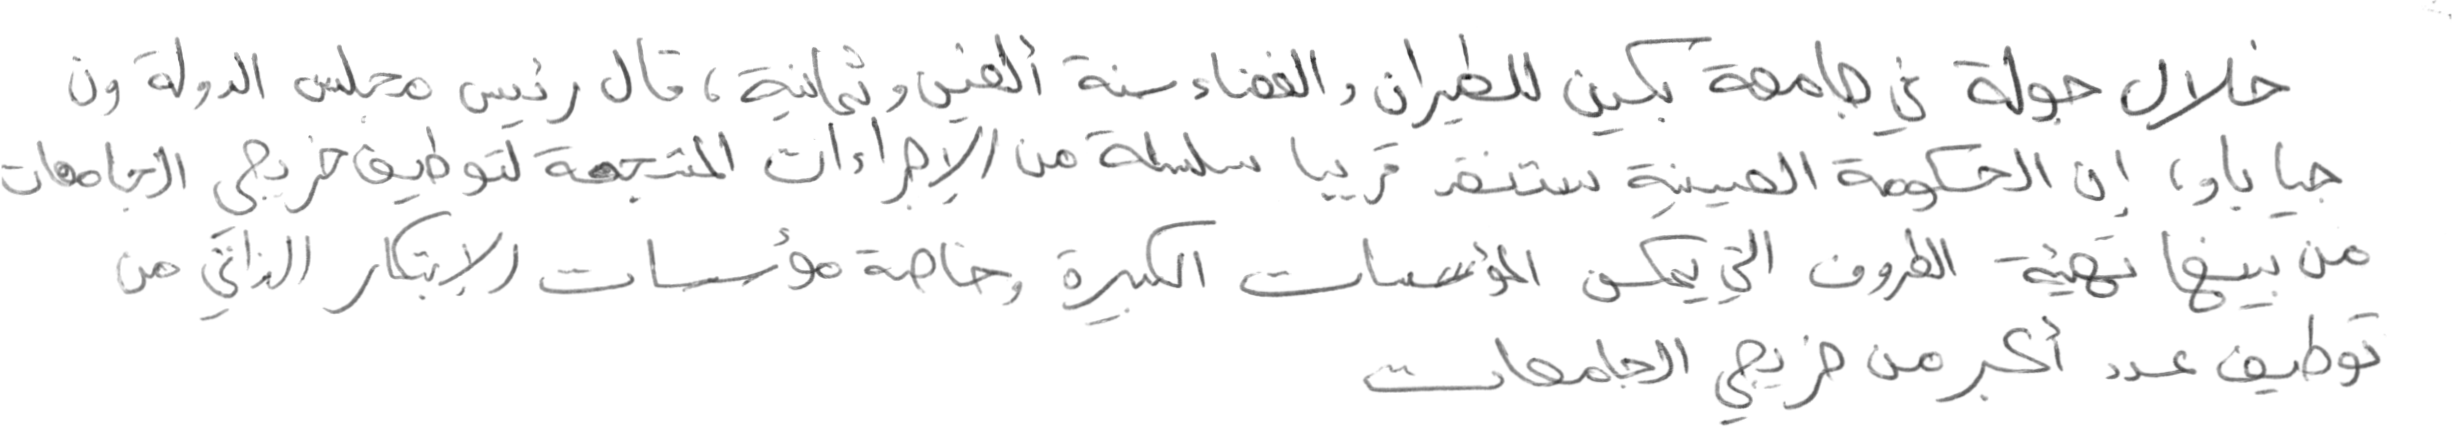 خلال جولة في جامعة بكين للطيران والفضاء سنة ألفين وثمانية، قال رئيس مجلس الدولة ون
جيا باو، إن الحكومة الصينية ستنفذ قريبا سلسلة من الإجراءات المشجعة لتوظيف خريجي الجامعات
من بينها تهيئة الظروف التي تمكن المؤسسات الكبيرة وخاصة مؤسسات الإبتكار الذاتي من
توظيف عدد أكبر من خريجي الجامعات